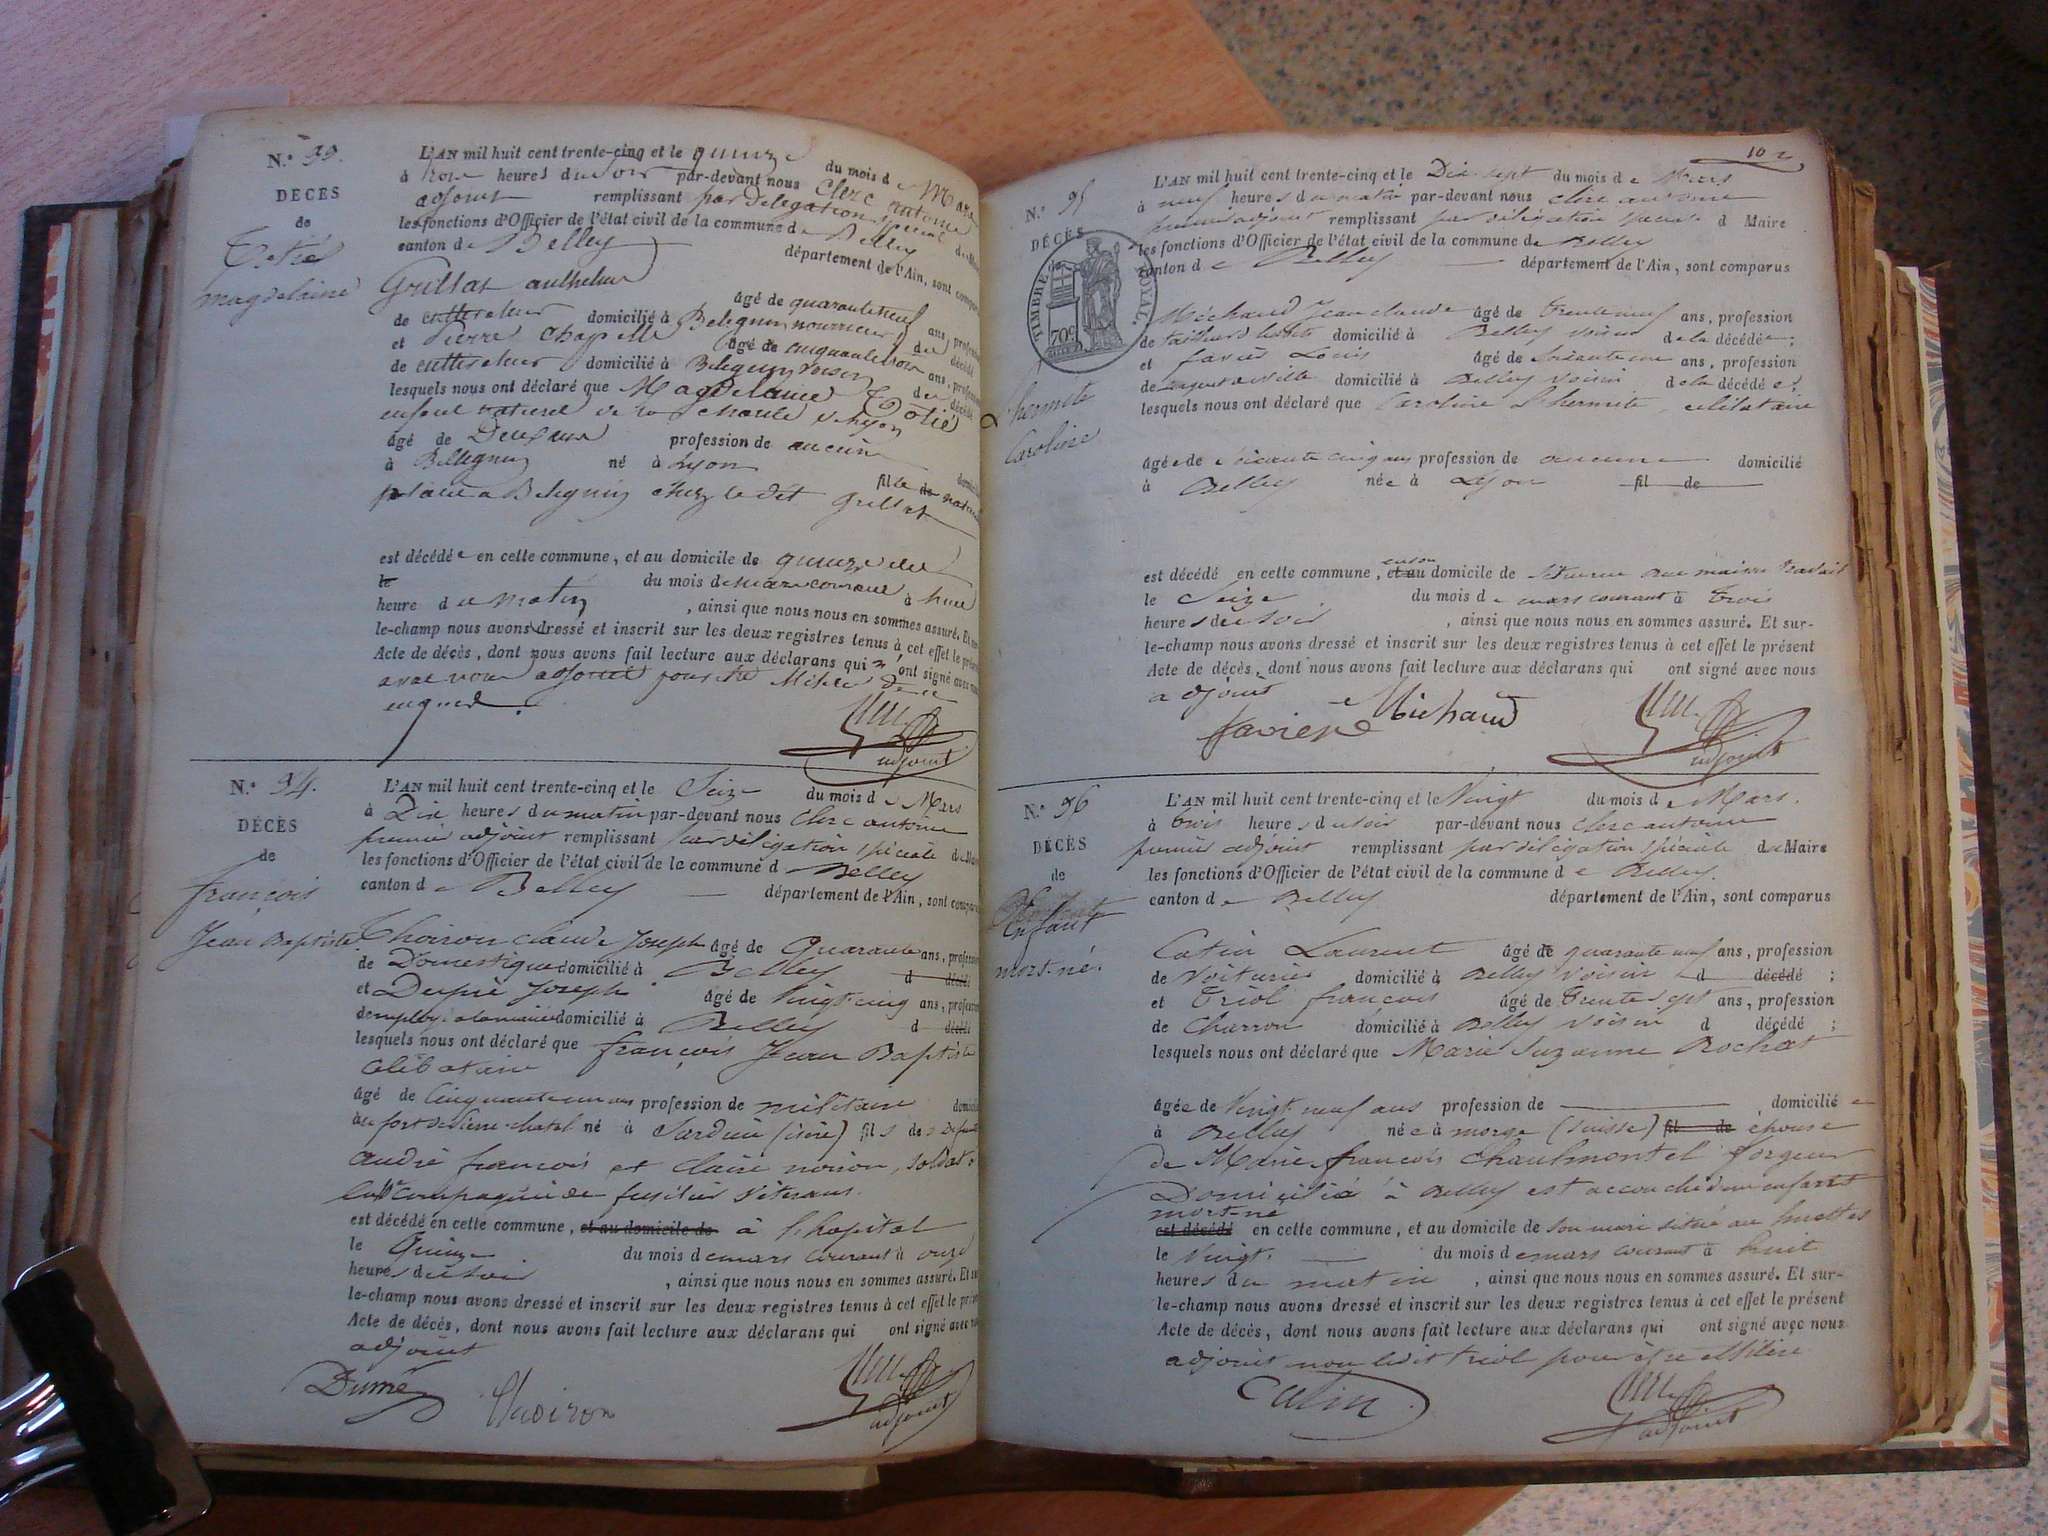 N.o 93.
DÉCÈS
de
magdelaine
L'AN mil huit cent trente-cinq et le quinze du mois de Mars
à trois heures du Soir par-devant nous Clerc antoine
adjoint remplissant par Delegation speciale du
les fonctions d'Officier de l'état civil de la commune de Belley
canton de Belley département de l'Ain, sont comparus
Grillat anthelme âgé de quarante neuf ans, profession
de cultivateur domicilié à Belignin nourricier du décédé
et Pierre Chapelle âgé de cinquante trois ans, profession
de cultivateur domicilié à Belignin voisin du décédé
lesquels nous ont déclaré que Magdelaine
enfant naturel de la charité de Lyon
âgé de Deux ans profession de aucune
à Belignin né à Lyon fille de
placée a Belignin chez le dit Grillat
est décédée en cette commune, et au domicile de quinze du
le du mois de mars courant à huit
heure du matin , ainsi que nous nous en sommes assuré. Et sur-
le-champ nous avons dressé et inscrit sur les deux registres tenus à cet effet le présent
Acte de décès, dont nous avons fait lecture aux déclarans qui n'ont signé avec nous
adjoint pour être de ce
enquis.
adjoint
N.o 94.
DÉCÈS
de
françois
Jean Baptiste
L'AN mil huit cent trente-cinq et le Seize du mois de Mars
à Dix heures du matin par-devant nous Clerc antoine
premier adjoint remplissant par délégation spéciale du Maire
les fonctions d'Officier de l'état civil de la commune d Belley
canton de Belley département de l'Ain, sont comparus
Thoiron claude Joseph âgé de Quarante ans, profession
de Domestique domicilié à Belley d décédé
et Joseph âgé de Vingt-cinq ans, profession
d'employé a la mairie domicilié à Belley d décédé
lesquels nous ont déclaré que françois Jean Baptiste
célibataire
âgé de Cinquante un ans profession de militaire domicilié
au fort de Pierre-chatel né à Sardieu (isère) fils de défunts
andré françois et claire moiron, soldat
compagnie de fusilier vétérans.
est décédé en cette commune, et au domicile de à l'hopital
le Quinze du mois de mars courant à onze
heures du soir , ainsi que nous nous en sommes assuré. Et sur
le-champ nous avons dressé et inscrit sur les deux registres tenus à cet effet le présent
Acte de décès, dont nous avons fait lecture aux déclarans qui ont signé avec nous
adjoint
Dumé Thoiron
adjoint
102
N.o 95
DÉCÈS
de
TIMBRE ROYAL.
70c
Lhermite
Caroline
L'AN mil huit cent trente-cinq et le Dix-sept du mois de Mars
à neuf heures du matin par-devant nous clerc antoine
premier adjoint remplissant par délégation d Maire
les fonctions d'Officier de l'état civil de la commune de Belley
canton de Belley département de l'Ain, sont comparus
Michaud Jean claude âgé de trente neuf ans, profession
de tailleur d'habits domicilié à Belley voisin de la décédée;
et favier Louis âgé de soixante une ans, profession
de domicilié à Belley voisin de la décédée;
lesquels nous ont déclaré que Caroline Lhermite célibataire
âgée de soixante cinq ans profession de aucune domicilié
à Belley née à Lyon fil de
est décédé en cette commune, en son et au domicile de situé rue maison Ravais
le Seize du mois de mars courant à trois
heures du soir , ainsi que nous nous en sommes assuré. Et sur-
le-champ nous avons dressé et inscrit sur les deux registres tenus à cet effet le présent
Acte de décès, dont nous avons fait lecture aux déclarans qui ont signé avec nous
adjoint
favier Michaud
adjoint
N.o 96
DÉCÈS
de
Enfant
mort-né.
L'AN mil huit cent trente-cinq et le Vingt du mois de Mars.
à trois heures du soir par-devant nous clerc antoine
premier adjoint remplissant par délégation spéciale du Maire
les fonctions d'Officier de l'état civil de la commune de Belley.
canton de Belley département de l'Ain, sont comparus
Catin Laurent âgé de quarante neuf ans, profession
de Voiturier domicilié à Belley voisin d décédé ;
et Triol françois âgé de trente sept ans, profession
de Charron domicilié à Belley voisin d décédé ;
lesquels nous ont déclaré que Marie Suzanne Rochat
âgée de Vingt-neuf ans profession de domiciliée
à Belley née à morge (suisse) fil de épouse
de Marie françois Chaulmontel forgeur
Domicilié à Belley est accouchée d'un enfant
mort-né
est décédé en cette commune, et au domicile de son mari situé au huettes
le Vingt du mois de mars courant à huit
heures du matin , ainsi que nous nous en sommes assuré. Et sur-
le-champ nous avons dressé et inscrit sur les deux registres tenus à cet effet le présent
Acte de décès, dont nous avons fait lecture aux déclarans qui ont signé avec nous
adjoint non ledit triol pour être illitéré
Catin
adjoint